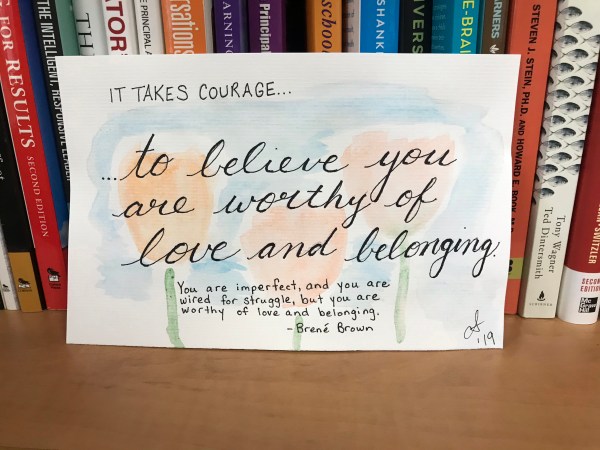 IT TAKES COURAGE...
...to believe you
are worthy of
love and belonging.
You are imperfect, and you are
wired for struggle, but you are
worthy of love and belonging.
-Brené Brown
'19
FOR RESULTS SECOND EDITION
THE INTELLIGENT, RESPONSIVE LEADER
TH
ATOR
E PRINCIPAL
sations
ARNING
Principa
schoo
SHANK
IVERS
E-BRAI
ARNERS
STEVEN J. STEIN, PH.D. AND HOWARD E. BOOK, M.D.
Tony Wagner
Ted Dintersmith
SCRIBNER
NN SWITZLER
SECON
EDITIO
Mc
Graw
Hill